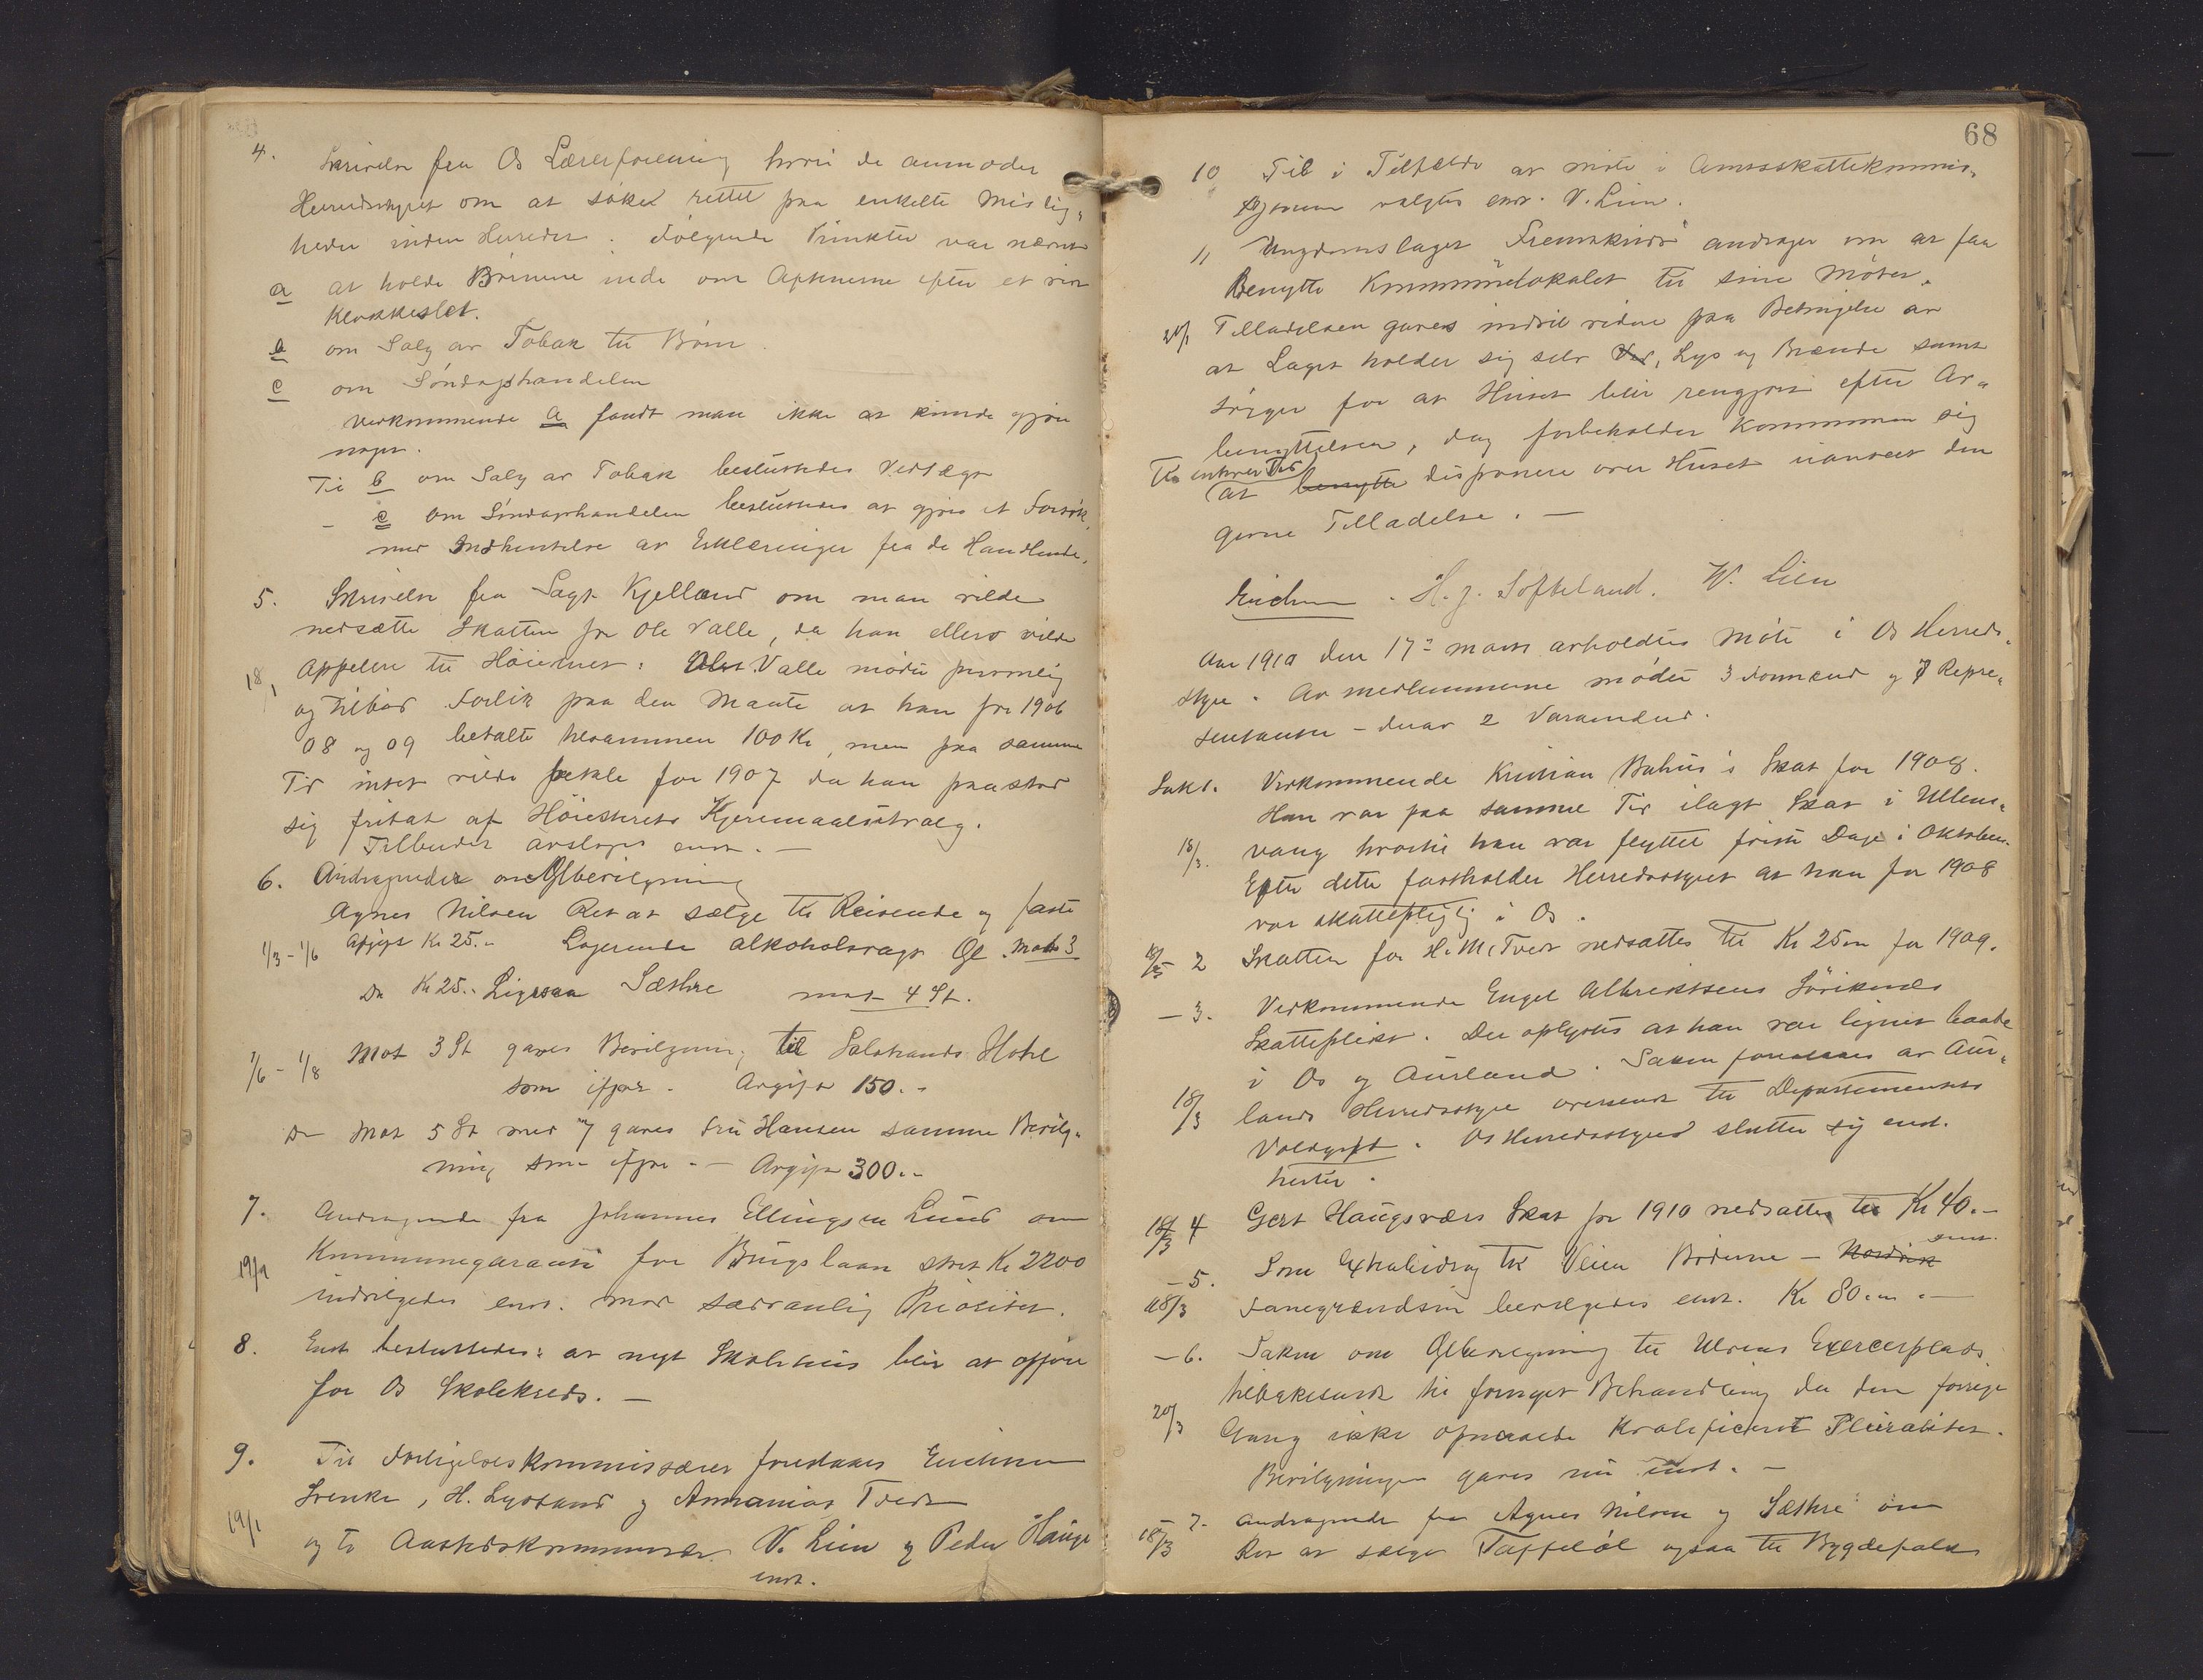 4. Skrivelse fra Os Lærerforening hvori de anmoder
Herredsstyret om at søke rettet paa enkelte Mislig-
heder inden Herredet. Følgende Punkter var nævnt
a at holde Børnene inde om Aftenerne efter et vist
Klokkeslet.
b om Salg av Tobak til Børn.
c om Søndagshandelen
Vedkommende a fandt man ikke at kunde gjøre
noget.
Til b om Salg av Tobak besluttedes Vedtægt
- c om Søndagshandelen besluttedes at gjøre et Forsøk
med Indhentelse av Erklæringer fra de Handlende.
5. Skrivelse fra Sagf. Kjelland om man vilde
nedsætte Skatten for Ole Valle, da han ellers vilde
18/1 appelere til Høiesteret: Valle mødte personlig
og tilbød Forlik paa den Maate at han for 1906
08 og 09 betalte tilsammen 100 Kr, men paa samme
Tid intet vilde betale for 1907 da han paastod
sig fritat af Høiesterets Kjæremaalsutvalg.
Tilbudet avsloges enst. —
6. Andragender om Ølbevilgning
Agnes Nilsen Ret at sælge til Reisende og faste
1/3 - 1/6 Afgift Kr 25.- Logerende alkoholsvagt Øl. Mot 3
Do Kr 25.- Ligesaa Sæthre mot 4 St.
1/6 - 1/8 Mot 3 St gaves Bevilgning til Solstrands Hotel
som ifjor. Avgift 150.-
Do Mot 5 St med 7 gaves Fru Hansen samme Bevilg-
ning som ifjor. — Avgift 300.-
7. Andragende fra Johannes Ellingsen Lund om
19/1 Kommunegaranti for Brugslaan stort Kr 2200
indvilgedes enst. mot sædvanlig Prioritet.
8. Enst. besluttedes: at nyt Skolehus blir at opføre
for Os Skolekreds. —
9. Til Forligelseskommissærer foreslaaes Erichsen
Svenke, H. Lysøand og Annanias Tveit
19/1 og til Aastedskommissær V. Lien og Peder Hauge
enst.
68
10 Til i Tilfælde at møte i Amtsskattekommis-
sjonen valgtes enst. V. Lien.
11 Ungdomslaget "Fremskridt" andrager om at faa
Benytte Kommunelokalet til sine Møter.
21/1 Tilladelsen gaves indtil videre paa Betingelse av
at Laget holder sig selv Ved, Lys og Brænde samt
sørger for at Huset blir rengjort efter Av-
benyttelsen, dog forbeholder Kommunen sig
til enhver Tid
at benytte disponere over Huset uanseet den
givne Tilladelse. —
Erichsen . H. J. Søfteland. W. Lien
Aar 1910 den 17de Mars avholdtes Møte i Os Herreds-
styre. Av Medlemmerne mødte 3 Formænd og 7 Repre-
sentanter - derav 2 Varamænd.
Sak 1. Vedkommende Kristian Bahus's Skat for 1908.
Han var paa samme Tid ilagt Skat i Ullens-
18/3. vang hvortil han var flyttet første Dage i Oktober.
Efter dette fastholder Herredsstyret at han for 1908
var skattepligtig i Os.
18/3 - 2 Skatten for H. M. Tveit nedsattes til Kr 25.00 for 1909.
- 3. Vedkommende Engel Albrektsens Søviknes
Skatteplikt. Der oplystes at han var lignet baade
i Os og Aurland. Saken foreslaaes av Aur-
18/3 lands Herredsstyre oversendt til Departementets
Voldgift. Os Herredsstyre slutter sig enst.
hertil.
18/3 4 Gert Haugsværs Skat for 1910 nedsattes til Kr 40.-
enst.
- 5. Som Extrabidrag til Veien Bøderne - Nordvik
18/3 Fanegrændsen bevilgedes enst. Kr 80.00. —
- 6. Saken om Ølbevilgning til Ulvens Exercerplads
tilbakesendt til fornyet Behandling da den forrige
20/3 Gang ikke opnaaede kvalificeret Pluralitet.
Bevilgningen gaves nu enst. -
- 7. Andragende fra Agnes Nilsen og Sæthre om
18/3 Ret at sælge Taffeløl ogsaa til Bygdefolk